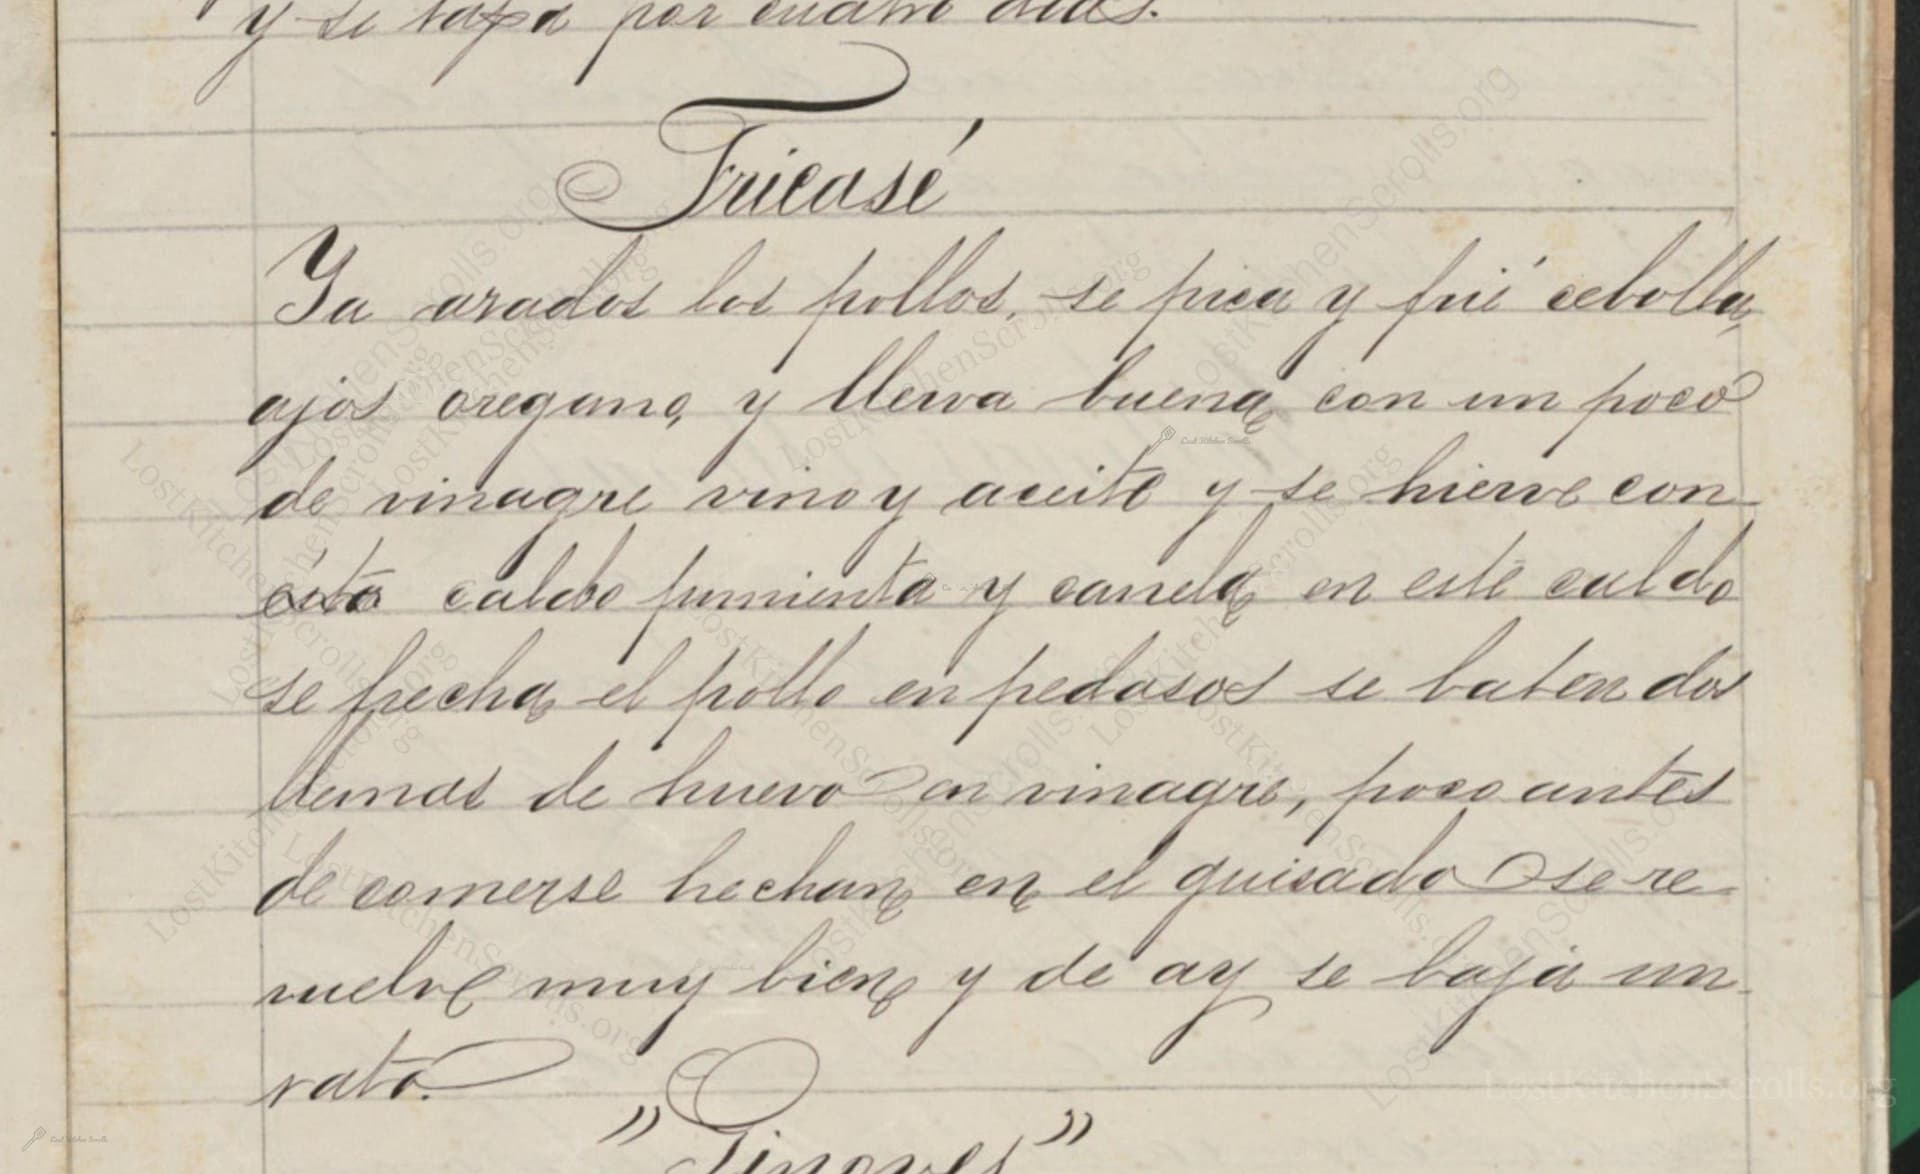 y se tapa por cuatro dias.
Fricasé
Ya asados los pollos, se pica y frié cebolla,
ajos oregano, y llerva buena con un poco
de vinagre vino y aceite y se hierve con
ésto caldo pimienta y canela en este caldo
se hecha el pollo en pedasos se baten dos
llemas de huevo en vinagre, poco antes
de comerse hechan en el guisado se re-
vuelve muy bien y de ay se baja un
rato.
"
"
LostKitchenScrolls.org
Lost Kitchen Scrolls